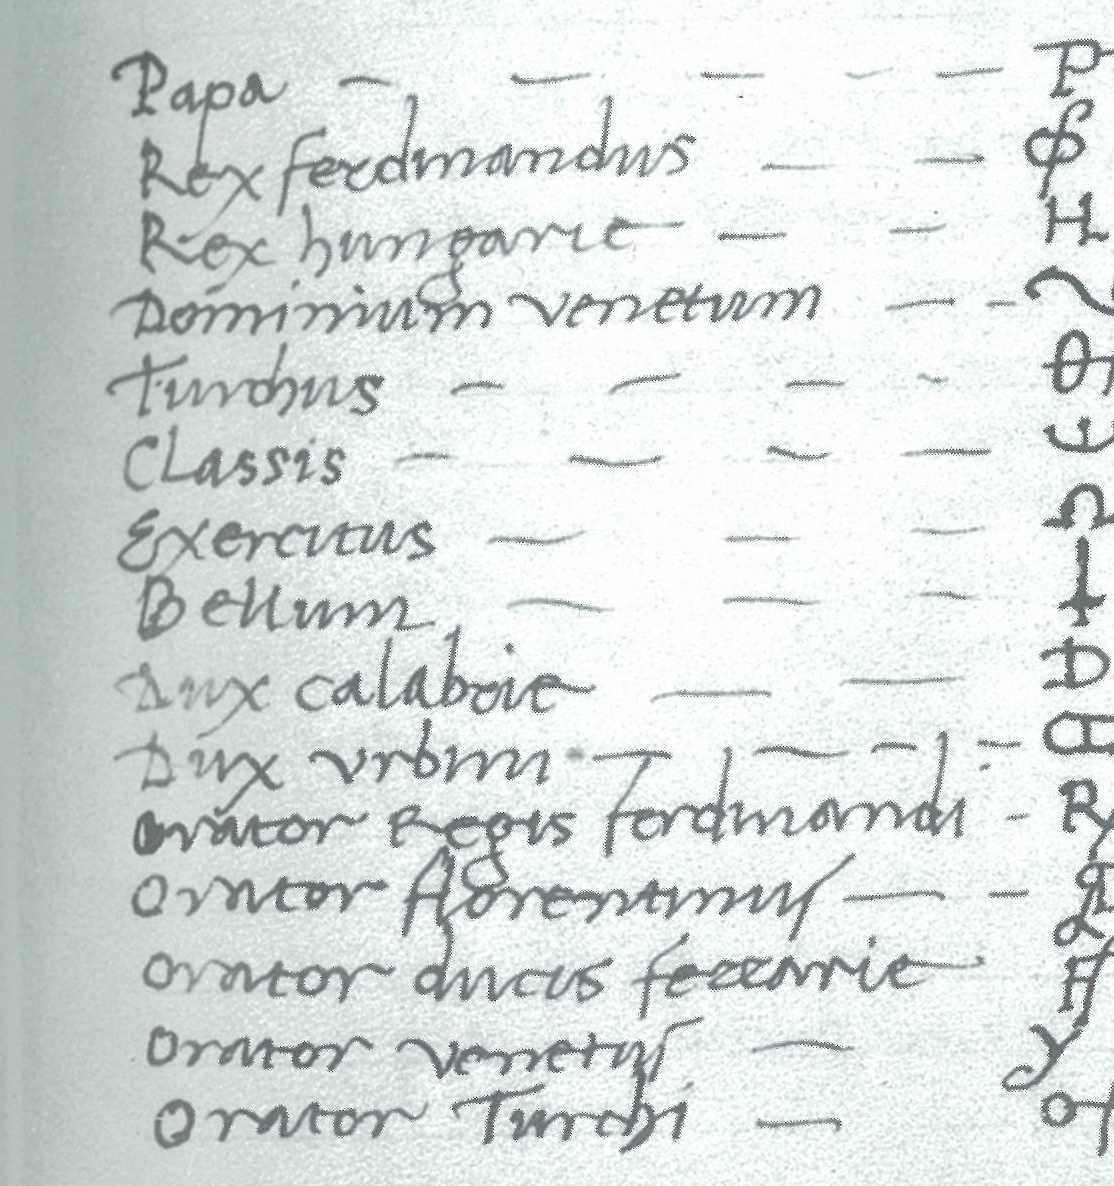 Papa — — — — — P
Rex ferdinandus — —
Rex hungarie — — H
Dominium venetum — —
Turchus — — — —
Classis — — — —
Exercitus — — — Ω
Bellum — — —
Dux calabrie — — D
Dux urbini — — — —
Orator Regis ferdinandi — R
Orator florentinus — —
Orator ducis ferrarie
Orator venetus — y
Orator Turchi —